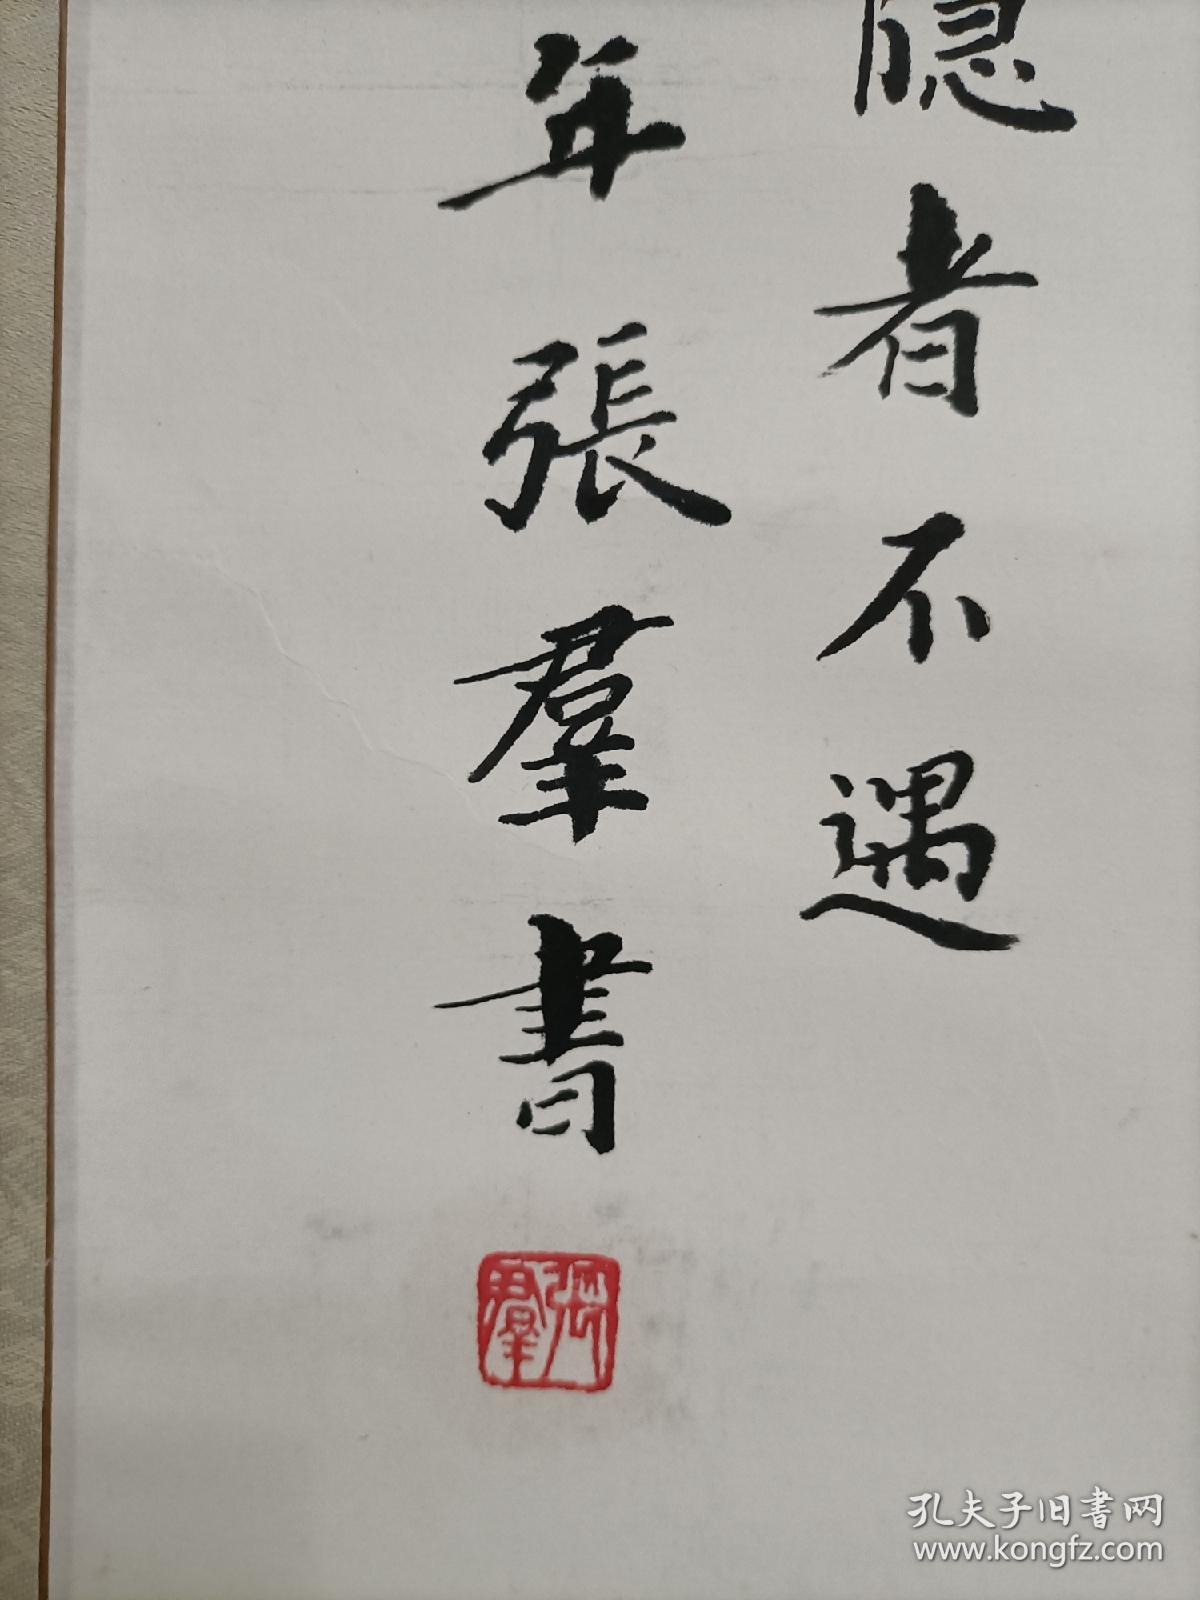 隐者不遇
年張羣書
張羣
孔夫子旧书网
www.kongfz.com